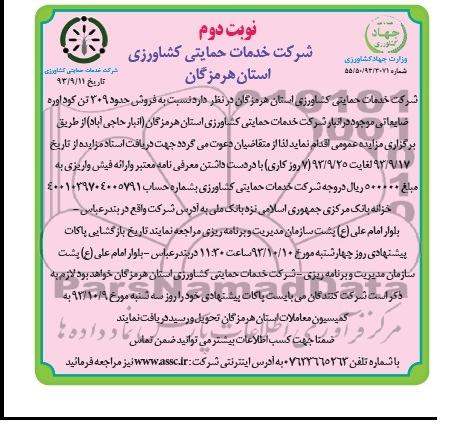 نوبت دوم
شرکت خدمات حمایتی کشاورزی
استان هرمزگان
جهاد
کشاورزی
وزارت جهاد کشاورزی
شماره ۵۵/۵۰/۹۳/۳۰۷۱
شرکت خدمات حمایتی کشاورزی
تاریخ ۹۳/۹/۱۱
شرکت خدمات حمایتی کشاورزی استان هرمزگان در نظر دارد نسبت به فروش حدود ۳۰۹ تن کود اوره
ضایعاتی موجود در انبار شرکت خدمات حمایتی کشاورزی استان هرمزگان (انبار حاجی آباد) از طریق
برگزاری مزایده عمومی اقدام نماید. لذا از متقاضیان دعوت می گردد جهت دریافت اسناد مزایده از تاریخ
۹۳/۹/۱۷ لغایت ۹۳/۹/۲۵ (۷ روز کاری) با در دست داشتن معرفی نامه معتبر وارائه فیش واریزی به
مبلغ ۵۰۰۰۰۰ ریال دروجه شرکت خدمات حمایتی کشاورزی بشماره حساب ۴۰۰۱۰۳۹۷۰۴۰۰۵۷۹۱
خزانه بانک مرکزی جمهوری اسلامی نزد بانک ملی به آدرس شرکت واقع در بندرعباس -
بلوار امام علی (ع) پشت سازمان مدیریت و برنامه ریزی مراجعه نمایند تاریخ بازگشایی پاکات
پیشنهادی روز چهارشنبه مورخ ۹۳/۱۰/۱۰ ساعت ۱۱:۳۰ در بندرعباس - بلوار امام علی (ع) پشت
سازمان مدیریت و برنامه ریزی - شرکت خدمات حمایتی کشاورزی استان هرمزگان خواهد بود لازم به
ذکر است شرکت کنندگان می بایست پاکات پیشنهادی خود را روز سه شنبه مورخ ۹۳/۱۰/۹ به
کمیسیون معاملات استان هرمزگان تحویل و رسید دریافت نمایند
ضمنا جهت کسب اطلاعات بیشتر می توانید ضمن تماس
با شماره تلفن ۰۷۶۳۳۶۶۰۲۶۳ به آدرس اینترنتی شرکت: www.assc.ir نیز مراجعه فرمائید
ParsNamadData
مرکز فرآوری اطلاعات پارس نماد داده ها